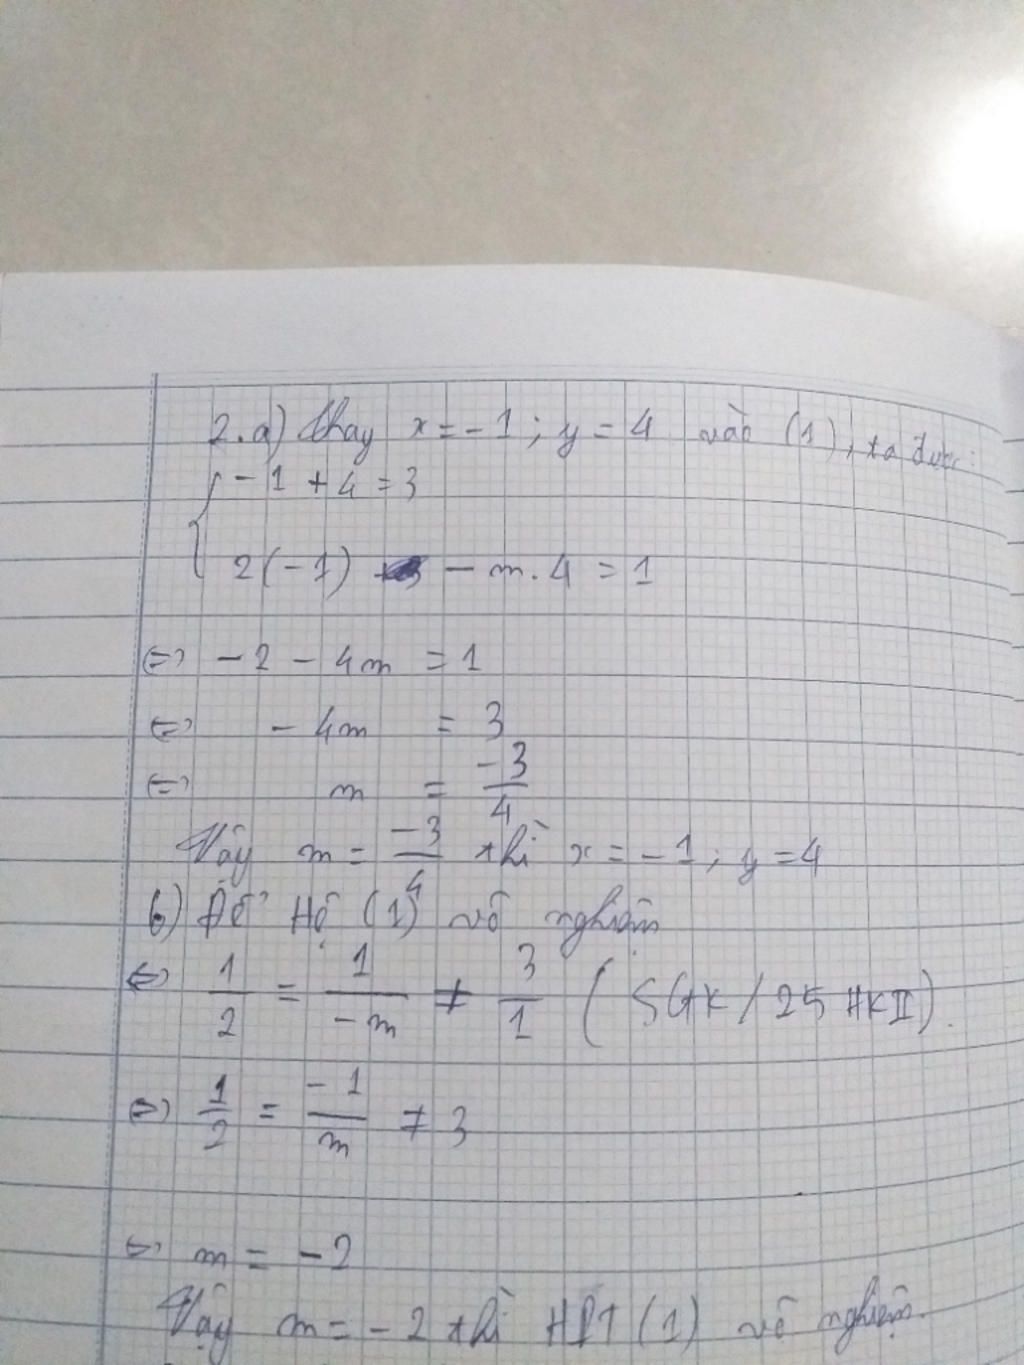 2.a) thay x = -1 ; y = 4 vào (1), ta được:
{ -1 + 4 = 3
2(-1) - m.4 = 1
⇔ -2 - 4m = 1
⇔ -4m = 3
⇔ m = -3/4
Vậy m = -3/4 thì x = -1; y = 4
b) Để Hệ (1) vô nghiệm
⇔ 1/2 = 1/-m ≠ 3/1 (SGK/25 HKII).
⇔ 1/2 = -1/m ≠ 3
⇔ m = -2
Vậy m = -2 thì HPT (1) vô nghiệm.